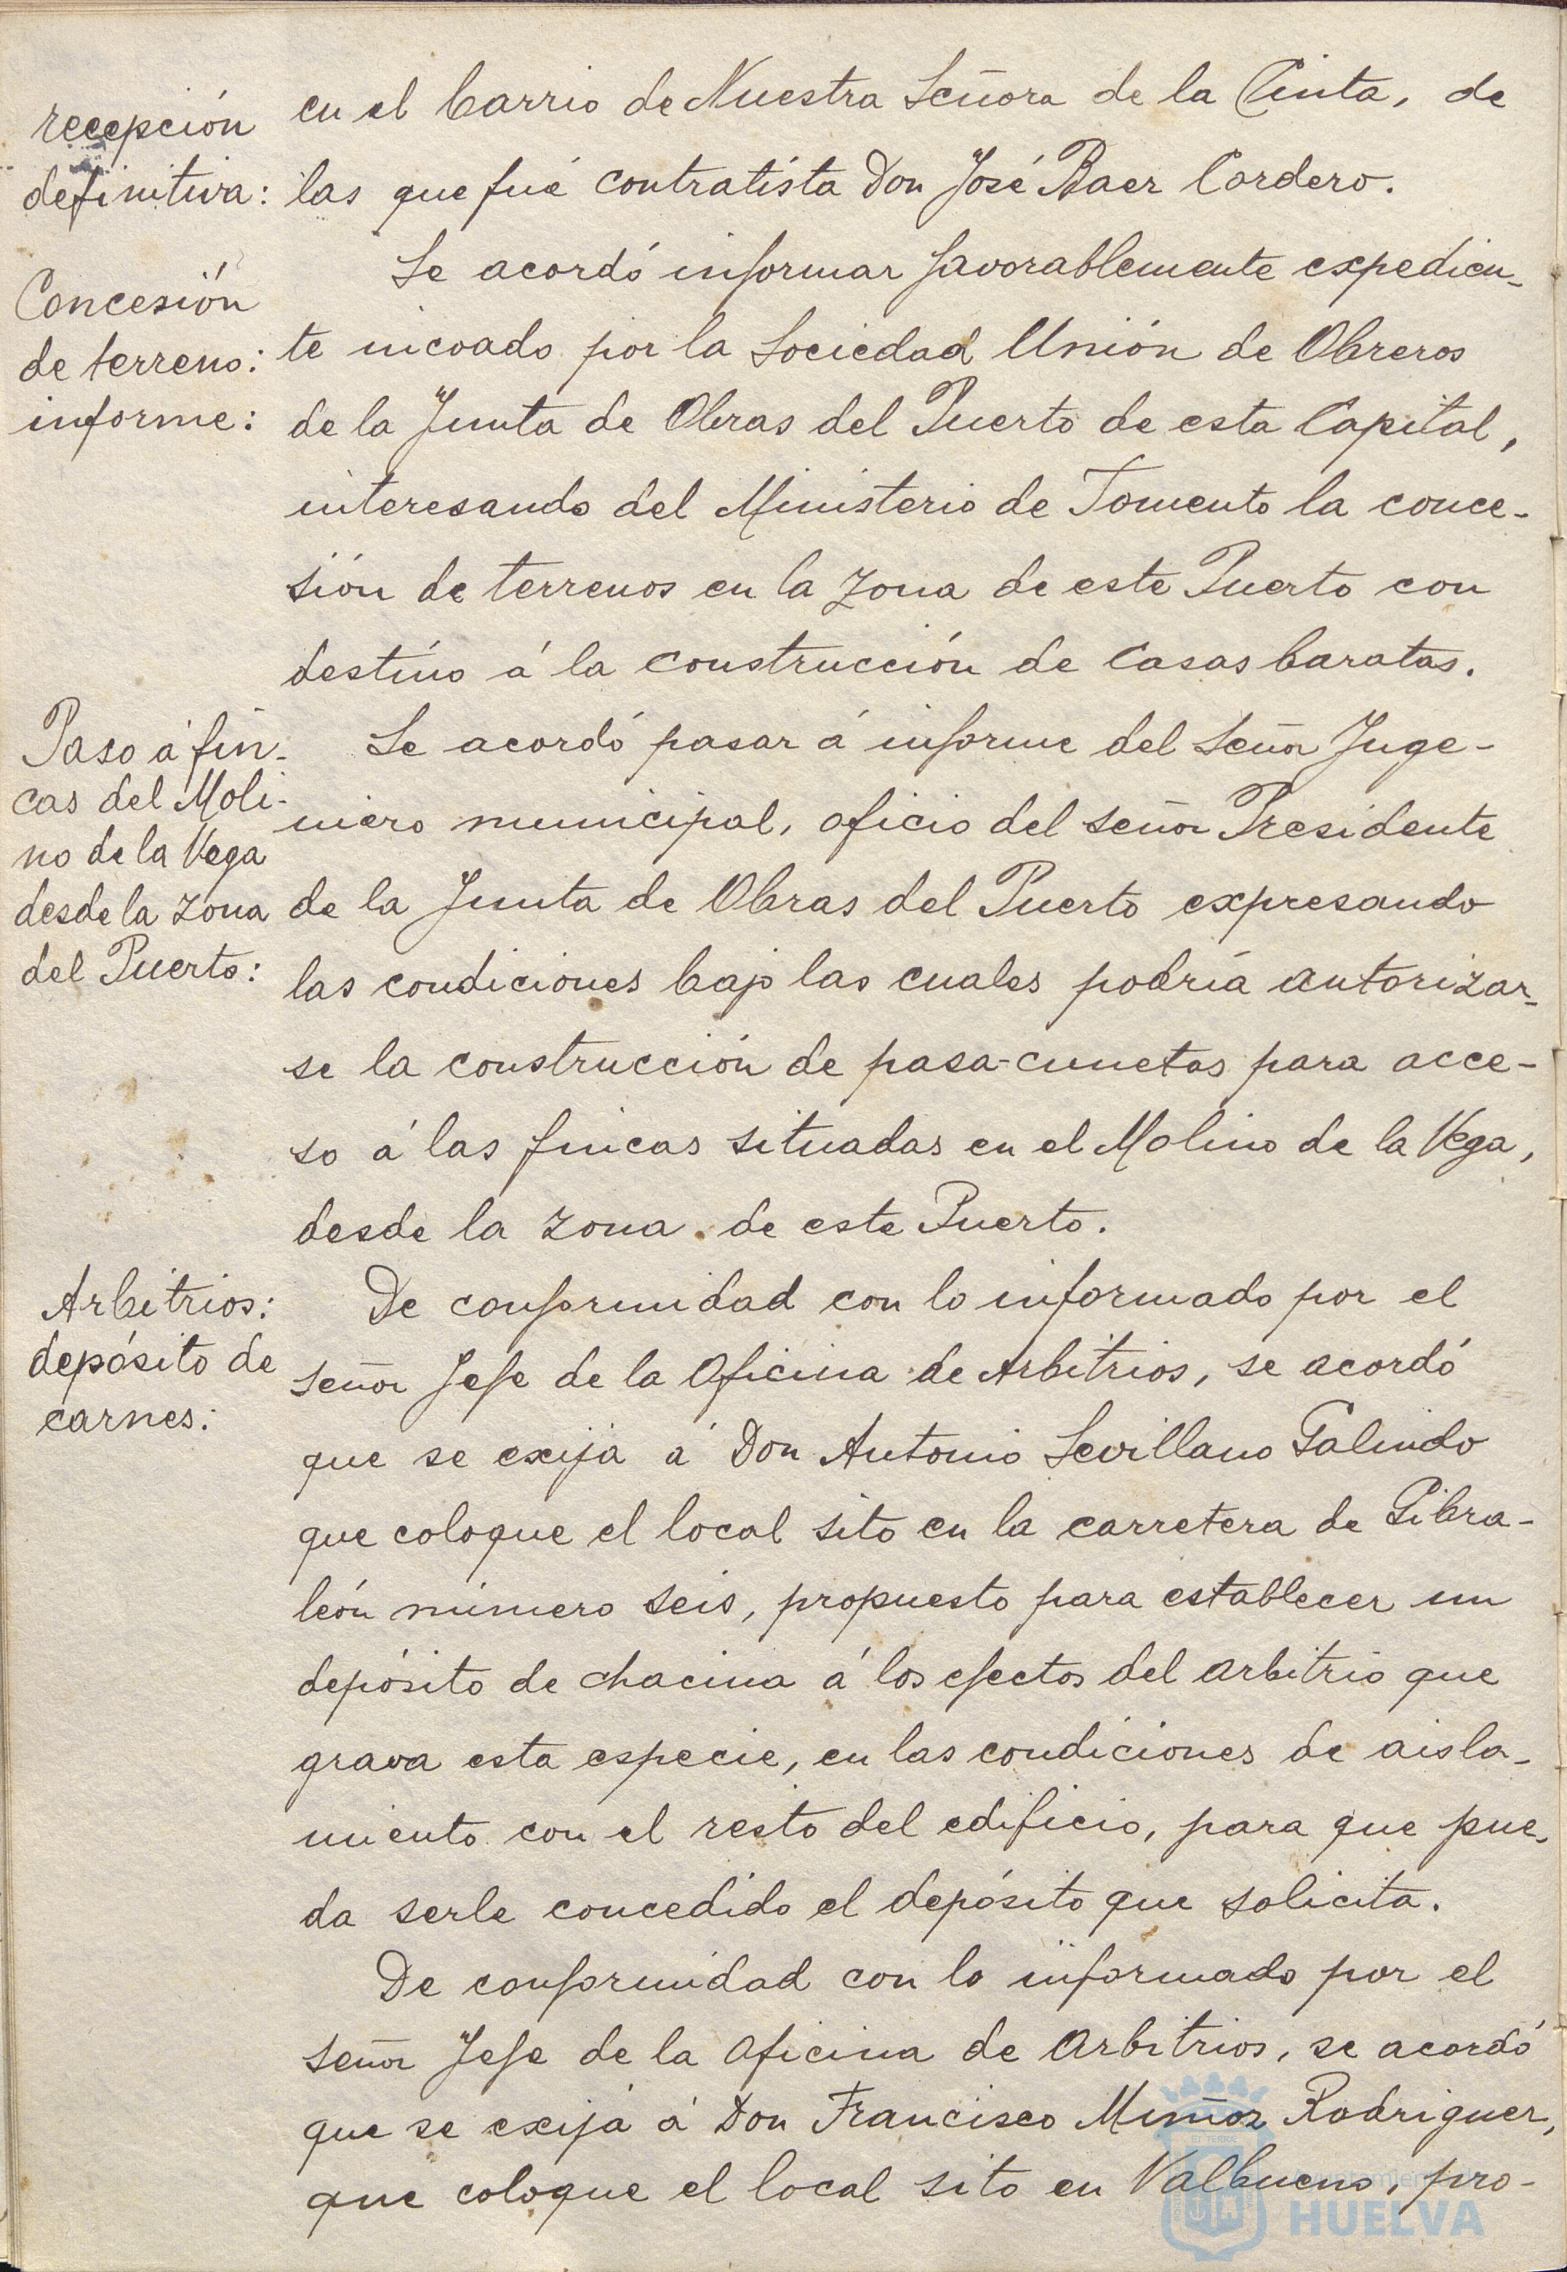 recepción
definitiva:
en el barrio de Nuestra Señora de la Cinta, de
las que fué contratista Don José Baer Cordero.
Concesión
de terreno:
informe:
Se acordó informar favorablemente expedien-
te incoado por la Sociedad Unión de Obreros
de la Junta de Obras del Puerto de esta Capital,
interesando del Ministerio de Fomento la conce-
sión de terrenos en la zona de este Puerto con
destino á la construcción de casas baratas.
Paso á fin-
cas del Moli-
no de la Vega
desde la zona
del Puerto:
Se acordó pasar á informe del Señor Inge-
niero municipal, oficio del señor Presidente
de la Junta de Obras del Puerto expresando
las condiciones bajo las cuales podría autorizar-
se la construcción de pasa-cunetas para acce-
so á las fincas situadas en el Molino de la Vega,
desde la zona de este Puerto.
Arbitrios:
depósito de
carnes:
De conformidad con lo informado por el
señor Jefe de la Oficina de Arbitrios, se acordó
que se exija á Don Antonio Sevillano Galindo
que coloque el local sito en la carretera de Gibra-
león número seis, propuesto para establecer un
depósito de chacina á los efectos del arbitrio que
grava esta especie, en las condiciones de aisla-
miento con el resto del edificio, para que pue-
da serle concedido el depósito que solicita.
De conformidad con lo informado por el
señor Jefe de la Oficina de Arbitrios, se acordó
que se exija á Don Francisco Muñoz Rodriguez,
que coloque el local sito en Valbueno, pro-
HUELVA